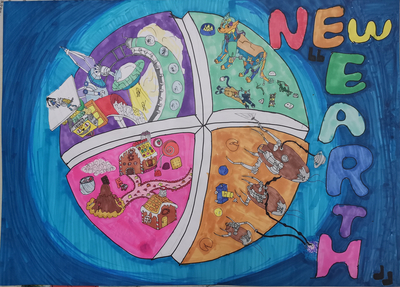 NEW
"EARTH"